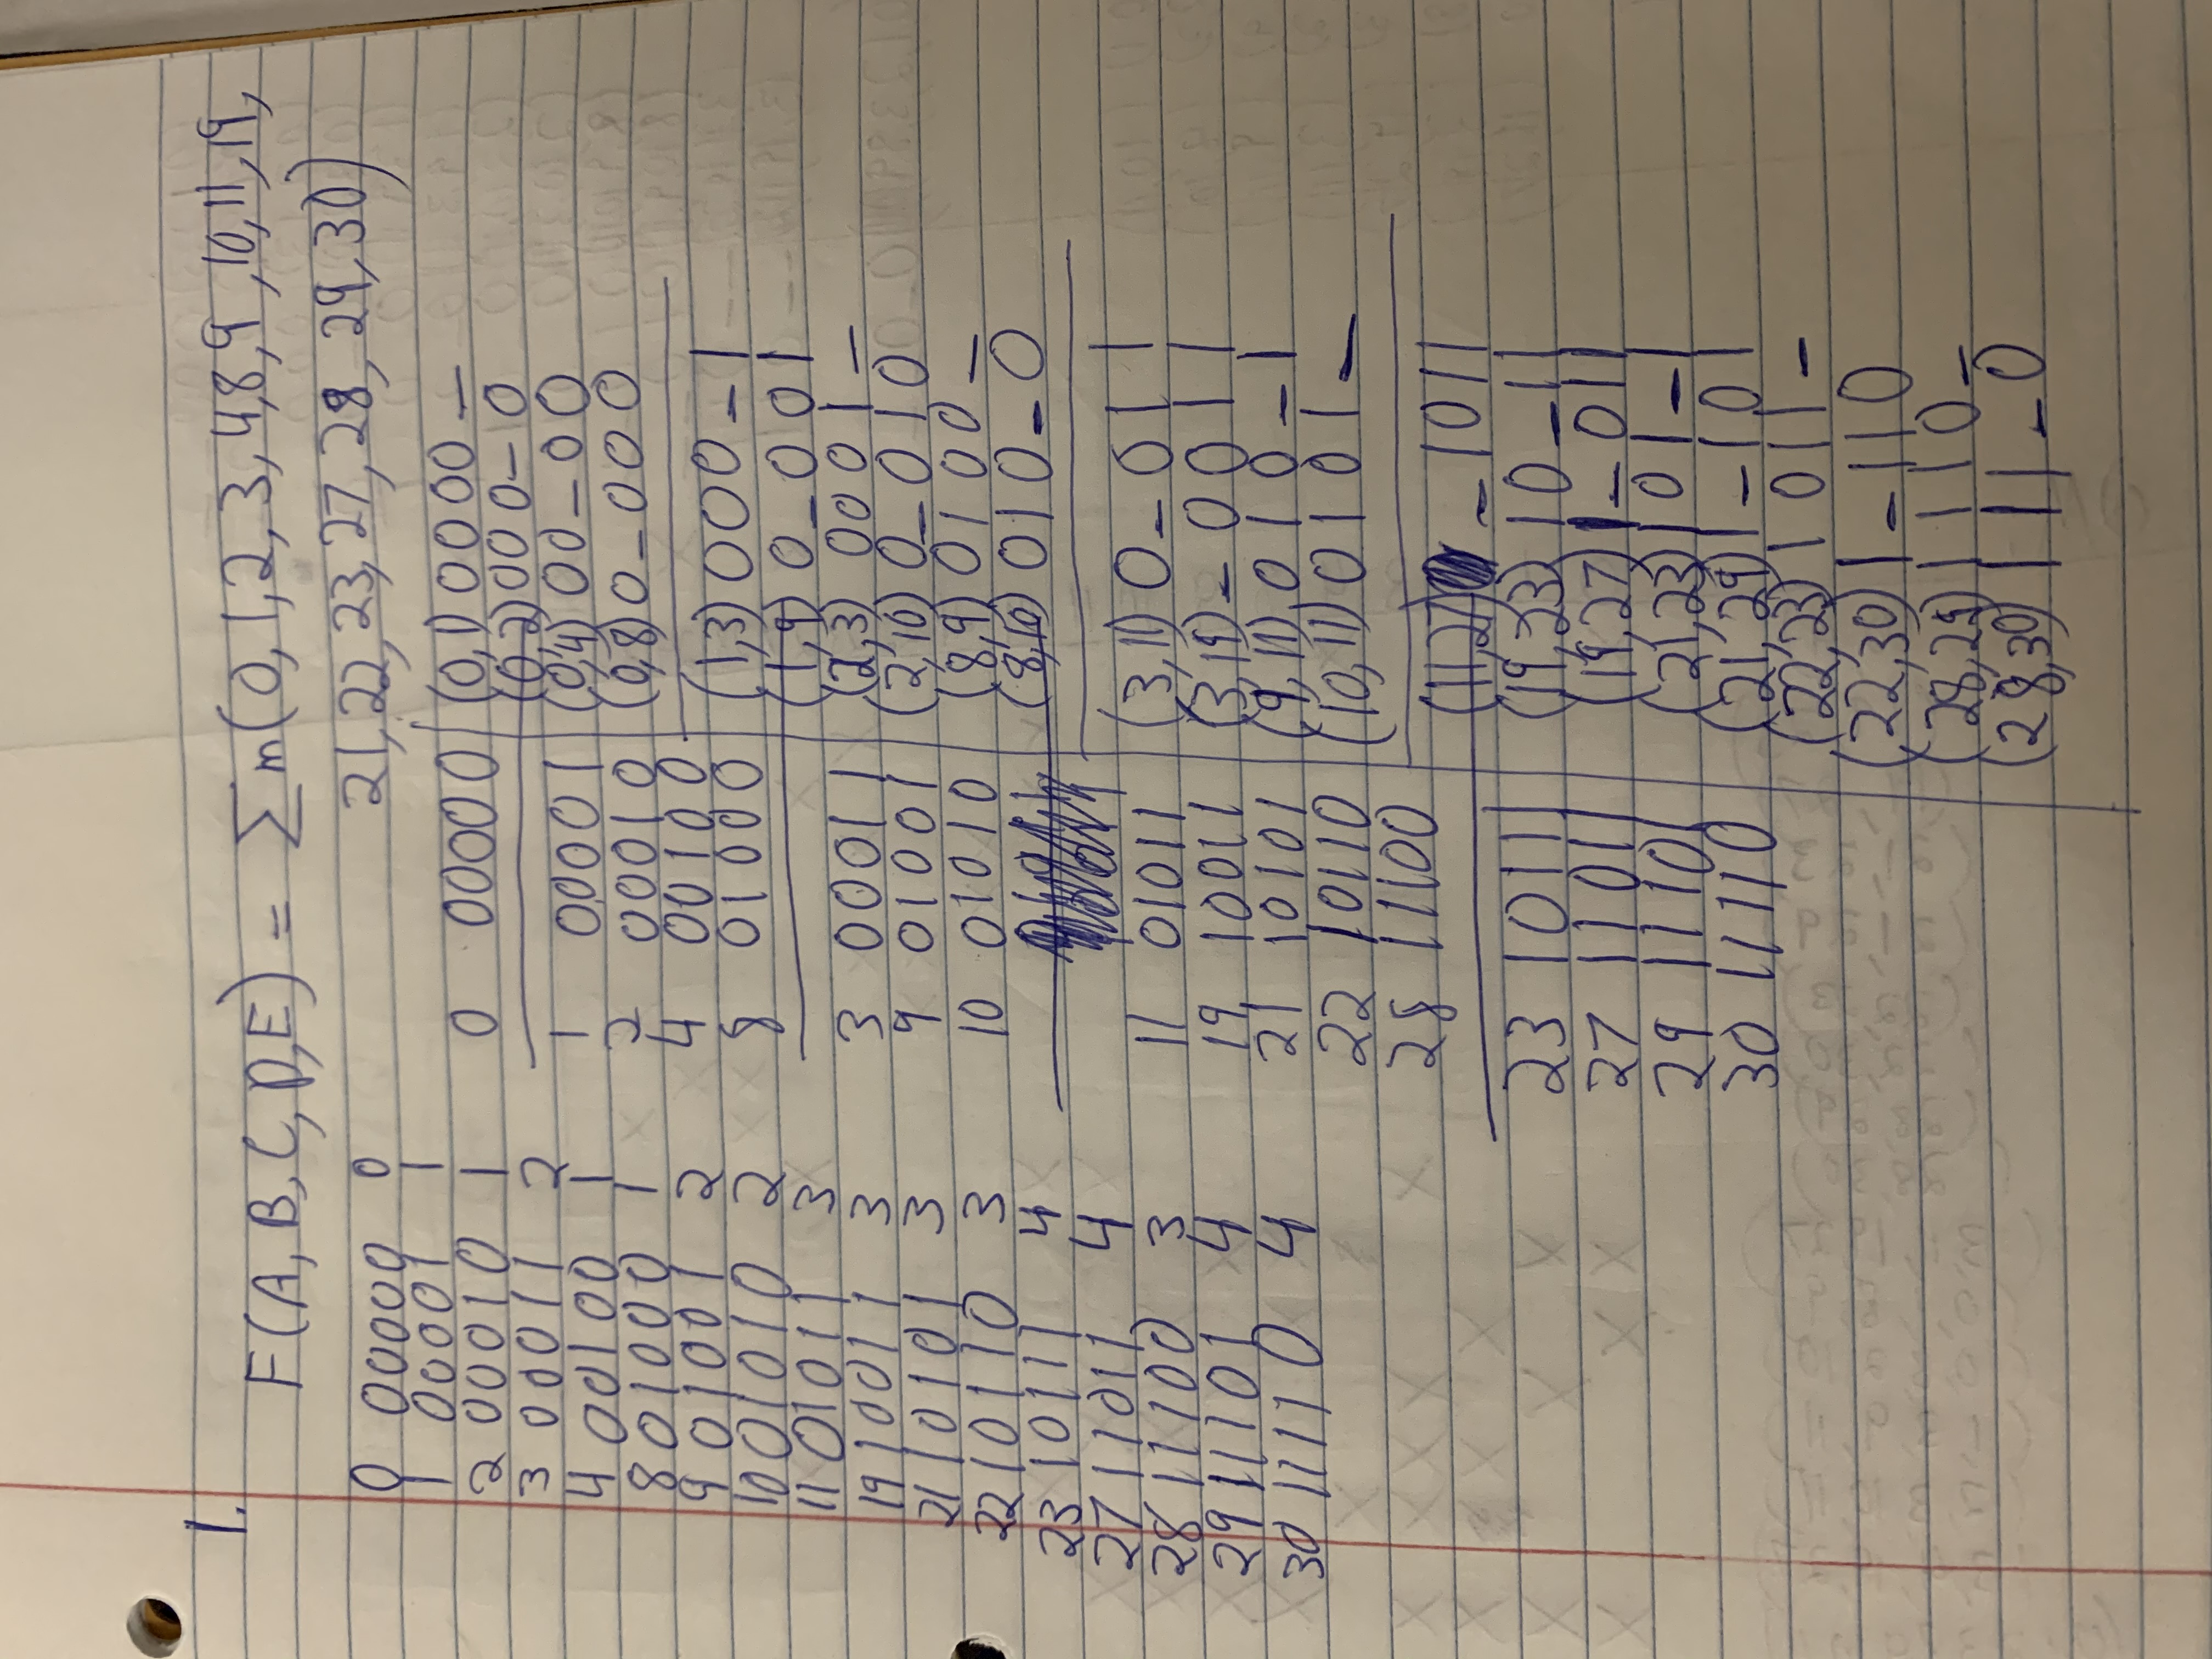 1.
F(A, B, C, D, E) = Σm(0, 1, 2, 3, 4, 8, 9, 10, 11, 19,
21, 22, 23, 27, 28, 29, 30)
0 00000 0
1 00001 1
2 00010 1
3 00011 2
4 00100 1
8 01000 1
9 01001 2
10 01010 2
11 01011 3
19 10011 3
21 10101 3
22 10110 3
23 10111 4
27 11011 4
28 11100 3
29 11101 4
30 11110 4
0 00000
1 00001
2 00010
4 00100
8 01000
3 00011
9 01001
10 01010
11 01011
19 10011
21 10101
22 10110
28 11100
23 10111
27 11011
29 11101
30 11110
(0,1) 0000_
(0,2) 000_0
(0,4) 00_00
(0,8) 0_000
(1,3) 000_1
(1,9) 0_001
(2,3) 0001_
(2,10) 0_010
(8,9) 0100_
(8,10) 010_0
(3,11) 0_011
(3,19) _0011
(9,11) 010_1
(10,11) 0101_
(11,27) _1011
(19,23) 10_11
(19,27) 1_011
(21,23) 101_1
(21,29) 1_101
(22,23) 1011_
(22,30) 1_110
(28,29) 1110_
(28,30) 111_0